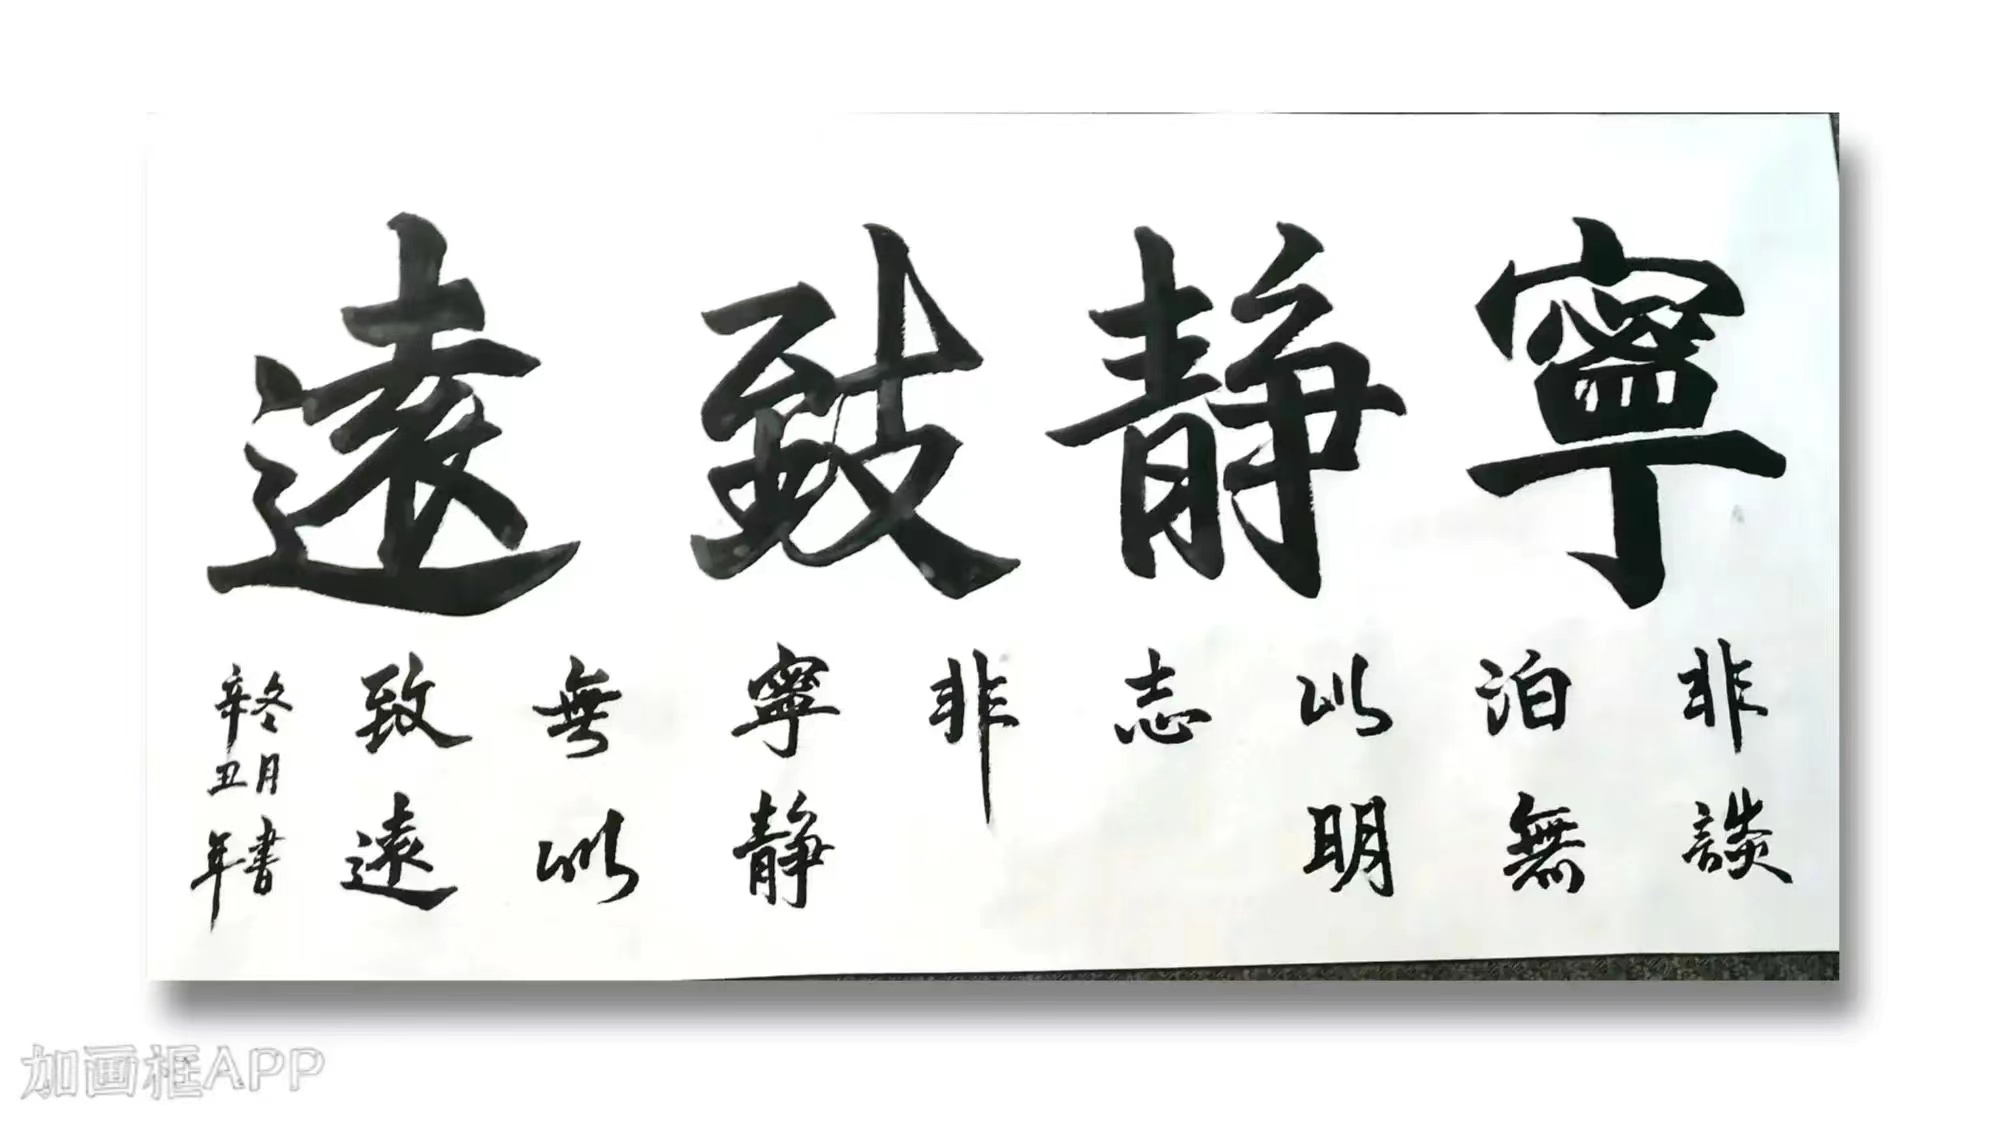 寧靜致遠
非談
泊無
以明
志
非
寧靜
無以
致遠
辛丑年
冬月書
加画框APP